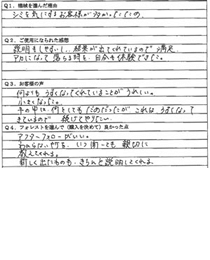 Q1. 機械を選んだ理由
シミを気にするお客様が多かったため。
Q2. ご使用になられた感想
説明もしやすいし、結果が出てくれているので満足
アカになって落ちる時を、自分も体験できました。
Q3. お客様の声
何よりもうすくなってくれていることがうれしい。
小さくなった。
手の甲は何をしてもだめだったがこれはうすくなって
きているので続けてやりたい。
Q4. フォレストを選んで(購入を決めて)良かった点
アフターフォローがいい。
わからない所を、いつ聞いても親切に
教えてくれる。
新しく出たものも、きちんと説明してくれる。